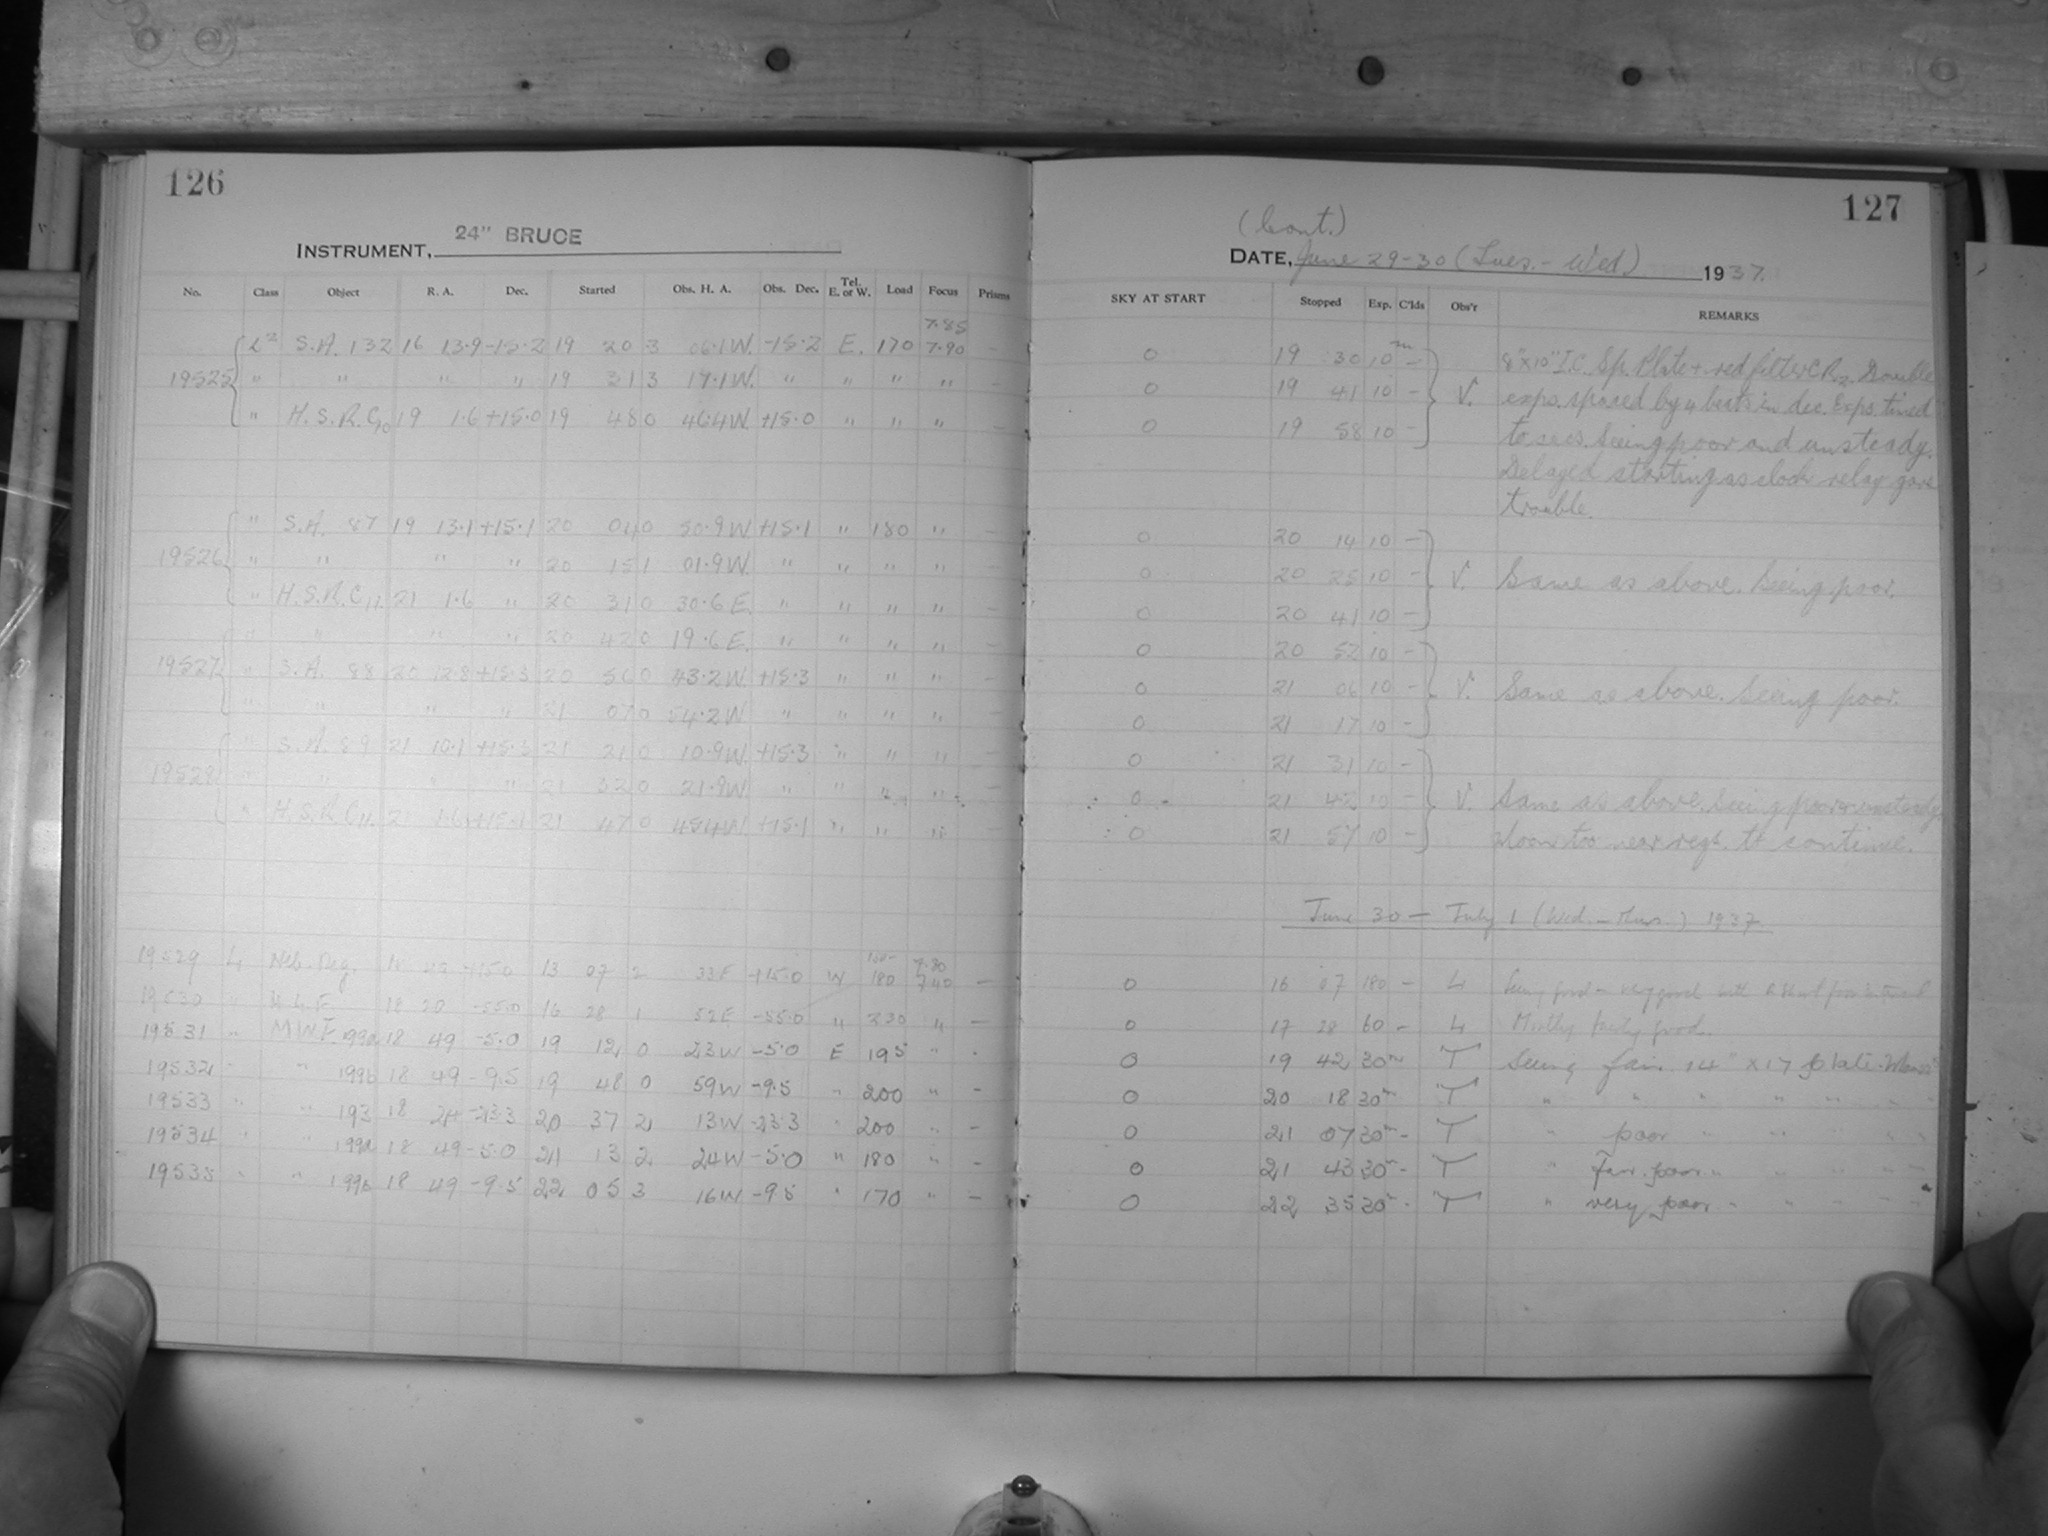 126
INSTRUMENT, 24" BRUCE
No. Class Object R. A. Dec. Started Obs. H. A. Obs. Dec. Tel. E. or W. Load Focus Prisms
7.85
S.A. 132 16 13.9 -15.2 19 20 3 06.1W. -15.2 E. 170 7.90 -
19525 " " " " 19 31 3 17.1W. " " " " -
" H.S.R.C10 19 1.6 +15.0 19 48 0 46.4W. +15.0 " " " -
" S.A. 87 19 13.1 +15.1 20 04 0 50.9W +15.1 " 180 " -
19526 " " " " 20 15 1 01.9W. " " " " -
" H.S.R.C11. 21 1.6 " 20 31 0 30.6E. " " " " -
" " " " 20 42 0 19.6E. " " " " -
19527 " S.A. 88 20 12.8 +15.3 20 56 0 43.2W. +15.3 " " " -
" " " " 21 07 0 54.2W " " " " -
" S.A. 89 21 10.1 +15.3 21 21 0 10.9W. +15.3 " " " -
19528 " " " " 21 32 0 21.9W. " " " "
" H.S.R.C11. 21 1.6 +15.1 21 47 0 45.4W. +15.1 " " " -
19529 4 Neb. Reg. +15.0 13 07 2 33E +15.0 W 180 7.40 -
19530 " 18 20 -55.0 16 28 1 52E -55.0 " 230 " -
19531 " M.W.F. 199a 18 49 -5.0 19 12 0 23W -5.0 E 195 " -
19532 " " 199b 18 49 -9.5 19 48 0 59W -9.5 " 200 " -
19533 " " 193 18 24 -23.3 20 37 2 13W -23.3 " 200 " -
19534 " " 199a 18 49 -5.0 21 13 2 24W -5.0 " 180 " -
19535 " " 199b 18 49 -9.5 22 05 3 16W -9.5 " 170 " -
127
(Cont.)
DATE, June 29-30 (Tues. - Wed.) 1937.
SKY AT START Stopped Exp. C'lds Obs'r REMARKS
0 19 30 10m - 8"x10" I.C. Sp. Plate + red filter CR2. Double
0 19 41 10 - V. exps. spaced by 4 beats in dec. Exps. timed
0 19 58 10 - to secs. Seeing poor and unsteady.
Delayed starting as clock relay gave
trouble.
0 20 14 10 -
0 20 25 10 - V. Same as above. Seeing poor.
0 20 41 10 -
0 20 52 10 -
0 21 06 10 - V. Same as above. Seeing poor.
0 21 17 10 -
0 21 31 10 -
0 21 42 10 - V. Same as above. Seeing poor & unsteady
0 21 57 10 - Moon too near regs. to continue.
June 30 - July 1 (Wed. - Thurs.) 1937
0 16 07 180 - 4 Seeing good - very good with
0 17 28 60 - 4 Mostly fairly good.
0 19 42 30m T Seeing fair. 14" x 17 plate.
0 20 18 30m T " " " " " "
0 21 07 30m - T " poor " " " "
0 21 43 30m - T " Fair. poor " " " "
0 22 35 30m - T " very poor " " " "